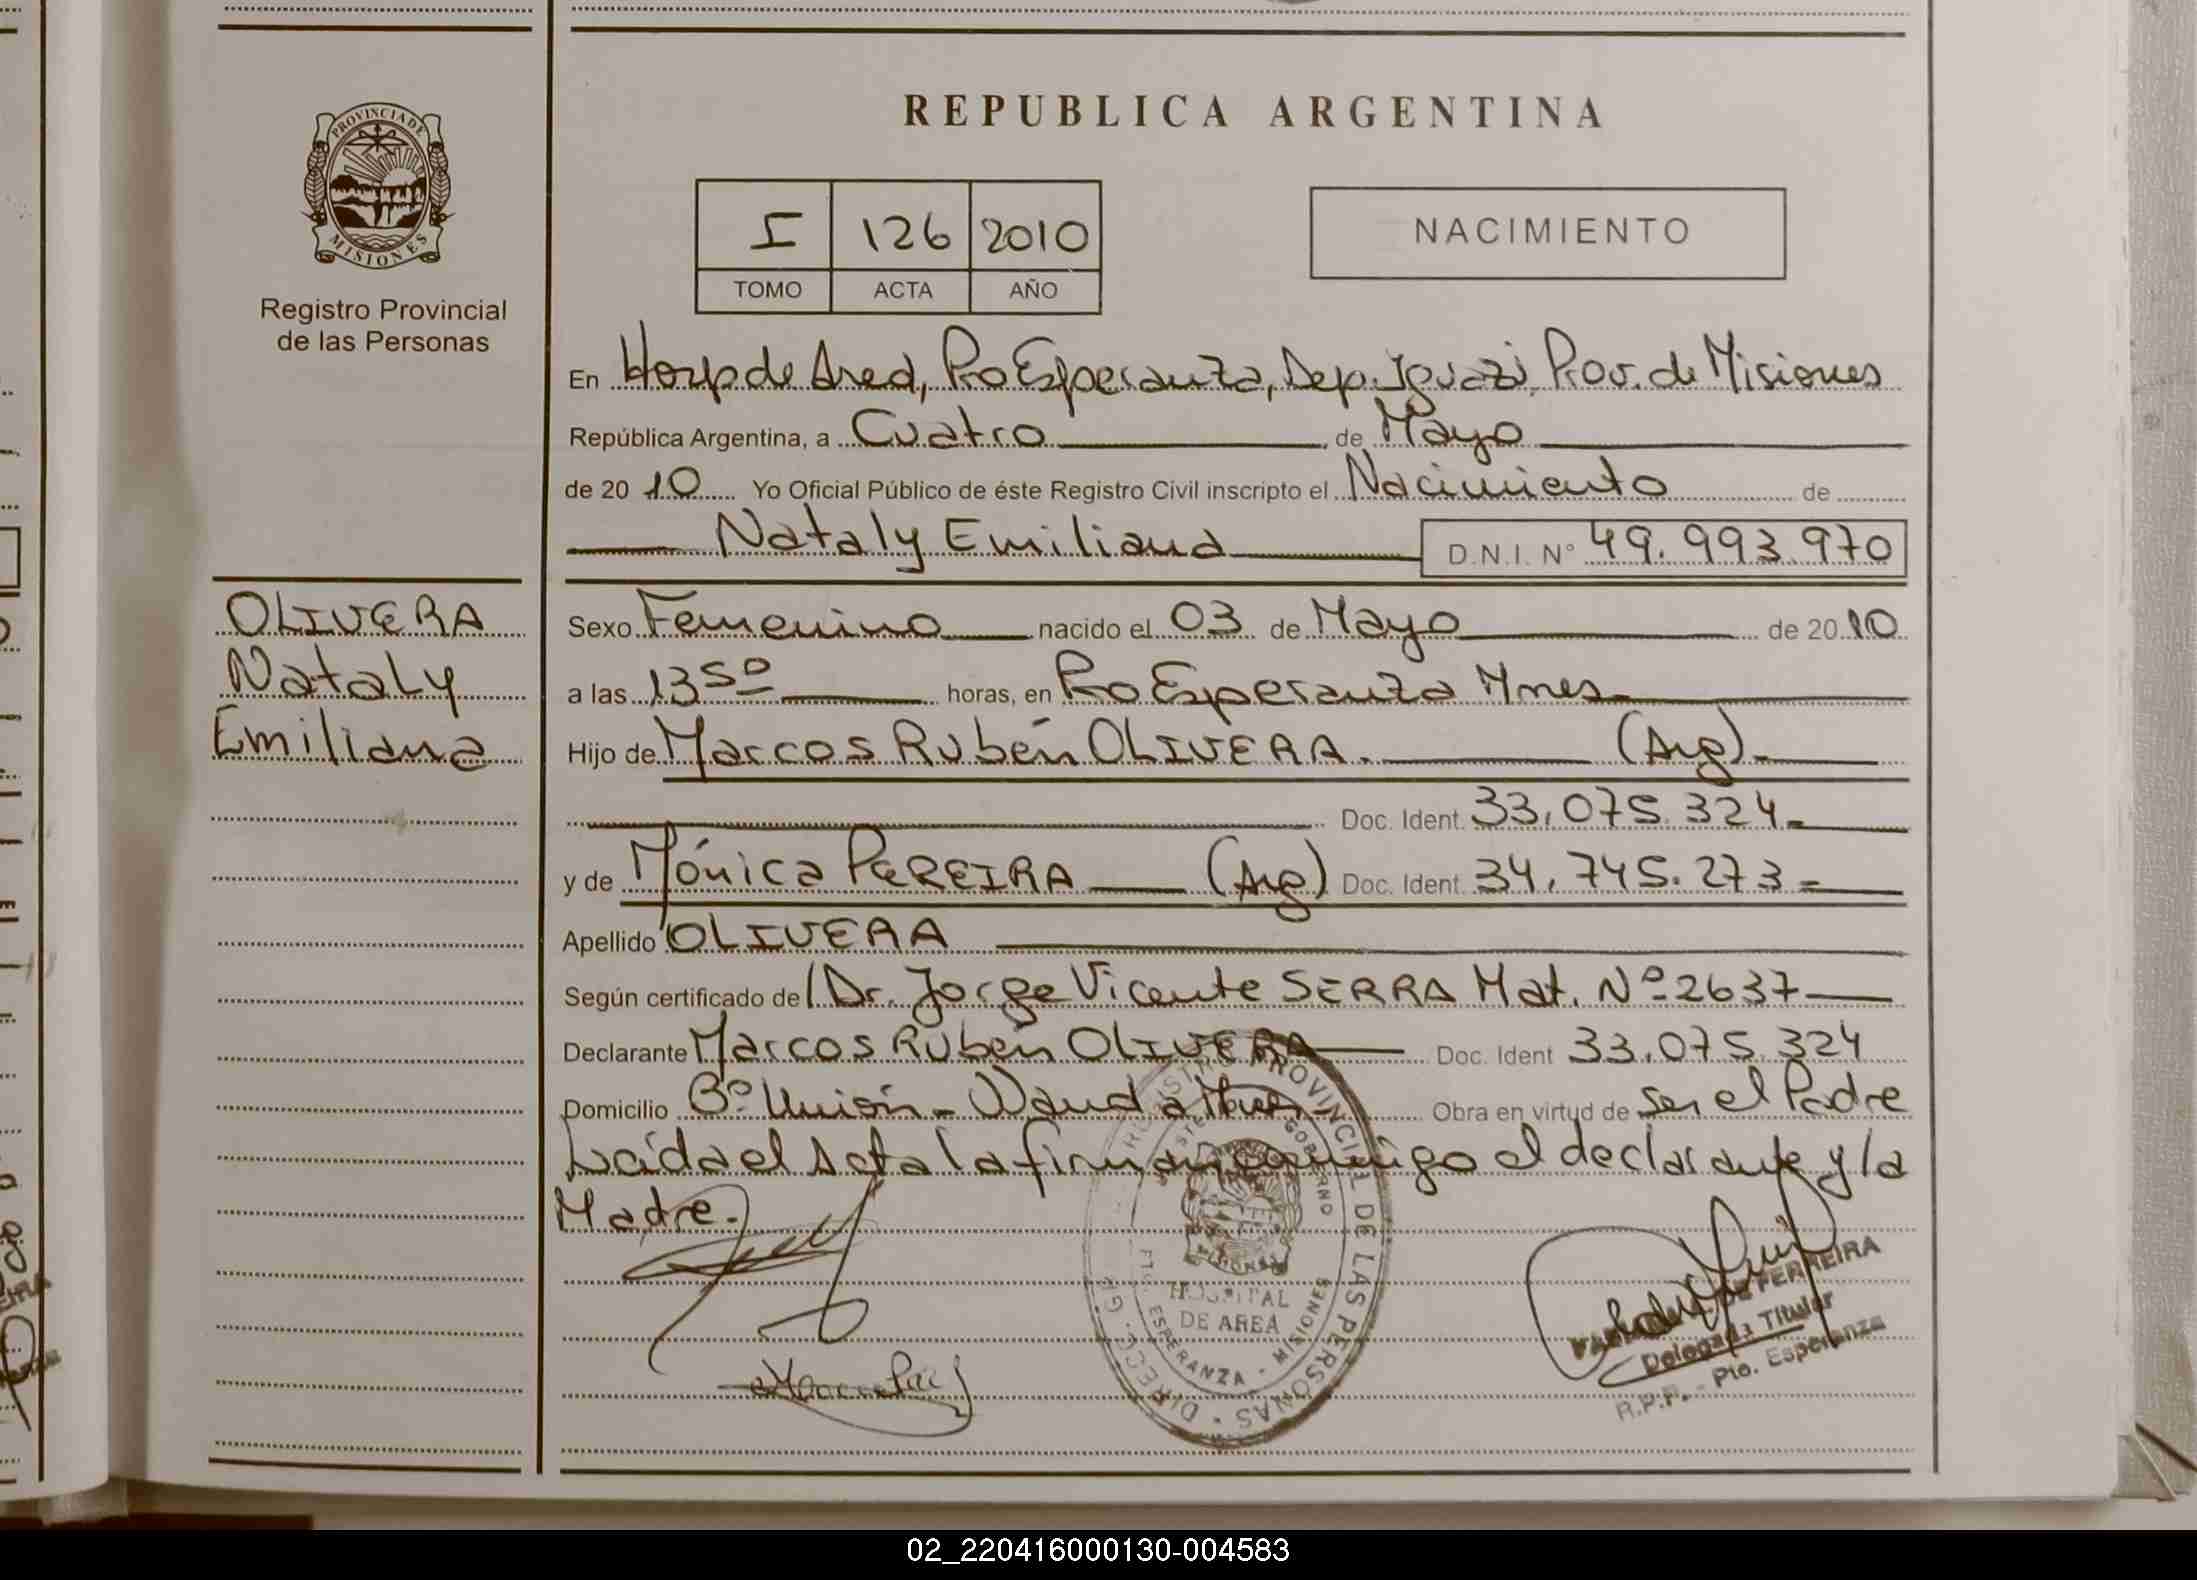 REPUBLICA ARGENTINA
PROVINCIA DE
MISIONES
Registro Provincial
de las Personas
I 126 2010
TOMO ACTA AÑO
NACIMIENTO
En Hosp de Area, Pto Esperanza, Dep. Iguazú, Prov. de Misiones
República Argentina, a Cuatro, de Mayo
de 2010 Yo Oficial Público de éste Registro Civil inscripto el Nacimiento de
Nataly Emiliana D.N.I. N° 49.993.970
OLIVERA
Nataly
Emiliana
Sexo Femenino nacido el 03 de Mayo de 2010
a las 13 50 horas, en Pto Esperanza Mnes
Hijo de Marcos Rubén OLIVERA. (Arg).
Doc. Ident. 33.075.324
y de Mónica PEREIRA (Arg) Doc. Ident. 34.745.273
Apellido OLIVERA
Según certificado de Dr. Jorge Vicente SERRA Mat. Nº 2637
Declarante Marcos Rubén OLIVERA Doc. Ident 33.075.324
Domicilio Bº Unión - Wanda Mnes Obra en virtud de ser el Padre
Leída el Acta la firman conmigo el declarante y la
Madre.
REGISTRO PROVINCIAL DE LAS PERSONAS
GOBIERNO
MISIONES
HOSPITAL
DE AREA
ESPERANZA - MISIONES
DE FERREIRA
Delegada Titular
R.P.P. - Pto. Esperanza
02_220416000130-004583